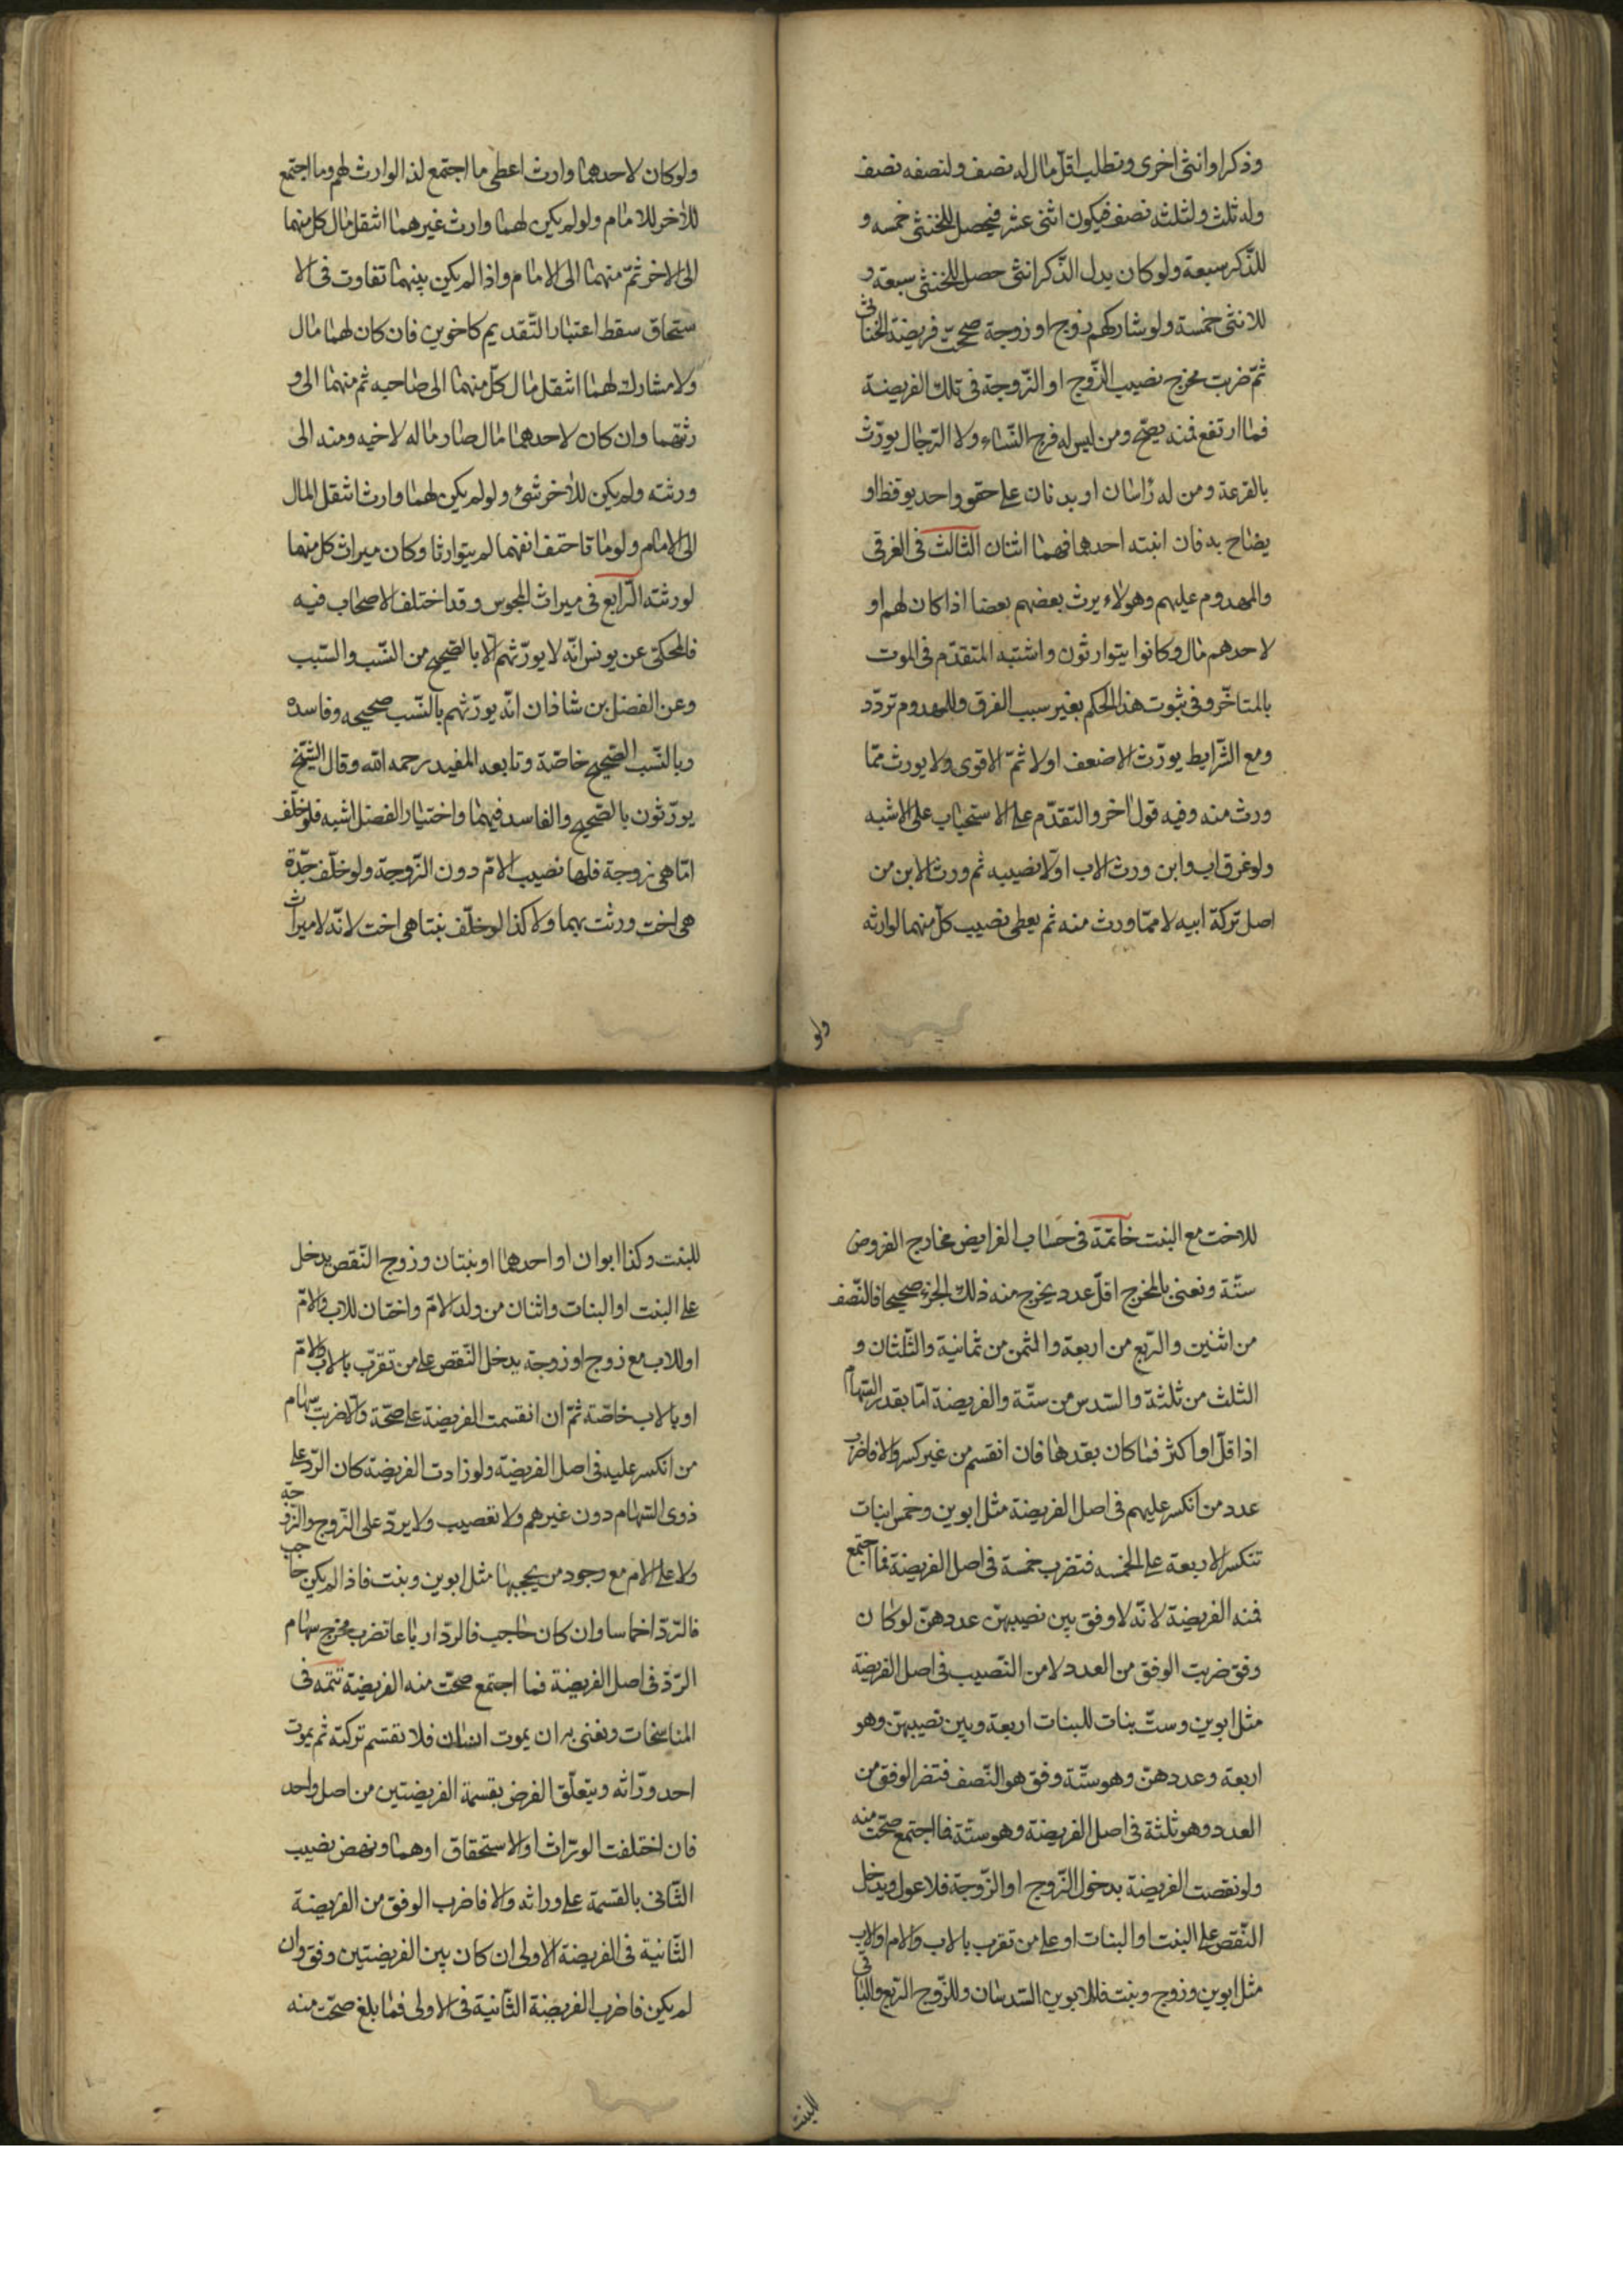 وذكرا وانثى اخرى وتطلب اقل مال له نصف ولنصفه نصف
وله ثلث ولثلثه نصف فيكون اثنى عشر فيحصل للخنثى خمسه و
للذّكر سبعة ولو كان بدل الذّكر انثى حصل للخنثى سبعة و
للانثى خمسة ولو شاركهم زوج او زوجة صححّت فريضة الخناثى
ثمّ ضربت مخرج نصيب الزّوج او الزّوجة فى تلك الفريضة
فما ارتفع فمنه يصحّ ومن ليس له فرج النّساء ولا الرّجال يورّث
بالقرعة ومن له رأسان او بدنان على حقو واحد يوقظ او
يصاح به فان انبته احدهما فهما اثنان الثالث فى الغرقى
والمهدوم عليهم وهولاء يرث بعضهم بعضا اذا كان لهم او
لاحدهم مال وكانوا يتوارثون واشتبه المتقدّم فى الموت
بالمتاخّر وفى ثبوت هذا الحكم بغير سبب الغرق والمهدوم تردّد
ومع الشّرايط يورّث الاضعف اولا ثمّ الاقوى ولا يورث ممّا
ورث منه وفيه قول اخر والتقدّم على الاستحباب على الاشبه
ولو غرق اب وابن ورث الاب اوّلا نصيبه ثم ورث الابن من
اصل تركة ابيه لا ممّا ورث منه ثم يعطى نصيب كلّ منهما لوارثه
ولو
ولو كان لاحدهما وارث اعطى ما اجتمع لذا الوارث لهم وما اجتمع
للاخر للامام ولو لم يكن لهما وارث غيرهما انتقل مال كل منهما
الى الاخر ثمّ منهما الى الامام واذا لم يكن بينهما تفاوت فى الا
ستحاق سقط اعتبار التّقديم كاخوين فان كان لهما مال
ولا مشارك لهما انتقل مال كلّ منهما الى صاحبه ثم منهما الى و
رثتهما وان كان لاحدهما مال صار ماله لاخيه ومنه الى
ورثته ولم يكن للاخر شئ ولو لم يكن لهما وارث انتقل المال
الى الامام ولو ماتا حتف انفهما لم يتوارثا وكان ميراث كل منهما
لورثته الرّابع فى ميراث المجوس وقد اختلف الاصحاب فيه
فالمحكىّ عن يونس انّه لا يورّثهم الّا بالصّحيح من النّسب والسّبب
وعن الفضل بن شاذان انّه يورّثهم بالنّسب صحيحه وفاسده
وبالسّبب الصّحيح خاصّة وتابعه المفيد رحمه الله وقال الشّيخ
يورّثون بالصّحيح والفاسد فيهما واختيار الفضل اشبه فلو خلّف
امّا هى زوجة فلها نصيب الامّ دون الزّوجة ولو خلّف جدّة
هى اخت ورثت بهما ولا كذا لو خلّف بنتا هى اخت لانّه لا ميراث
للاخت مع البنت خاتمة فى حساب الفرايض مخارج الفروض
ستّة ونعنى بالمخرج اقلّ عدد يخرج منه ذلك الجزء صحيحا فالنّصف
من اثنين والرّبع من اربعة والثمن من ثمانية والثّلثان و
الثلث من ثلثة والسّدس من ستّة والفريضة امّا بقدر السّهام
اذا قلّ او اكثر فما كان بقدرها فان انقسم من غير كسر والا فاضرب
عدد من انكسر عليهم فى اصل الفريضة مثل ابوين وخمس بنات
تنكسر الاربعة على الخمسه فتضرب خمسة فى اصل الفريضة فما اجتمع
فمنه الفريضة لانّه لا وفق بين نصيبهنّ عددهنّ لو كان
وفق ضربت الوفق من العدد لا من النّصيب فى اصل الفريضة
مثل ابوين وستّ بنات للبنات اربعة وبين نصيبهنّ وهو
اربعة وعددهنّ وهو ستّة وفق هو النّصف فتضرالوفق من
العدد وهو ثلثة فى اصل الفريضة وهو ستّة فما اجتمع صحّت منه
ولو نقصت الفريضة بدخول الزّوج او الزّوجة فلا عول ويدخل
النّقص على البنت او البنات او على من تقرب بالاب والام او الاب
مثل ابوين وزوج وبنت فللابوين السّدسان وللزّوج الرّبع والباقى
للبنت
للبنت وكذا ابوان او احدهما او بنتان وزوج النّقص يدخل
على البنت او البنات واثنان من ولد الامّ واختان للاب والامّ
او للاب مع زوج او زوجة يدخل النّقص على من تقرّب بالاب والامّ
او بالاب خاصّة ثمّ ان انقسمت الفريضة على صحّة والّا ضربت سهام
من انكسر عليه فى اصل الفريضة ولو زادت الفريضة كان الرّد على
ذوى السّهام دون غيرهم ولا تعصيب ولا يردّ على الزّوج والزّوجة
ولا على الام مع وجود من يحجبها مثل ابوين وبنت فاذا لم يكن حاجب
فالرّدّ اخماسا وان كان حاجب فالردّ ارباعا تضرب مخرج سهام
الرّدّ فى اصل الفريضة فما اجتمع صحّت منه الفريضة تتمه فى
المناسخات ونعنى به ان يموت انسان فلا تقسم تركته ثم يموت
احد ورّاثه ويتعلّق الفرض بقسمة الفريضتين من اصل واحد
فان اختلفت الورّاث او الاستحقاق اوهما ونهض نصيب
الثّانى بالقسمة على وراثه والا فاضرب الوفق من الفريضة
الثّانية فى الفريضة الاولى ان كان بين الفريضتين وفق وان
لم يكن فاضرب الفريضة الثّانية فى الاولى فما بلغ صحّت منه